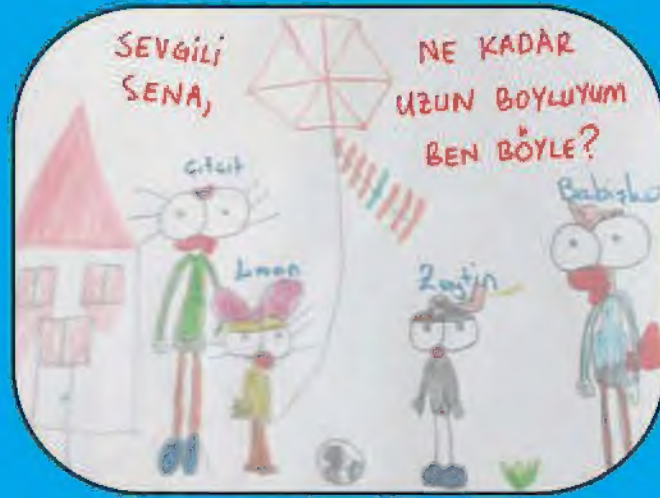 SEVGİLİ
SENA,
NE KADAR
UZUN BOYLUYUM
BEN BÖYLE?
Citcit
Limon
Zeytin
Babişko